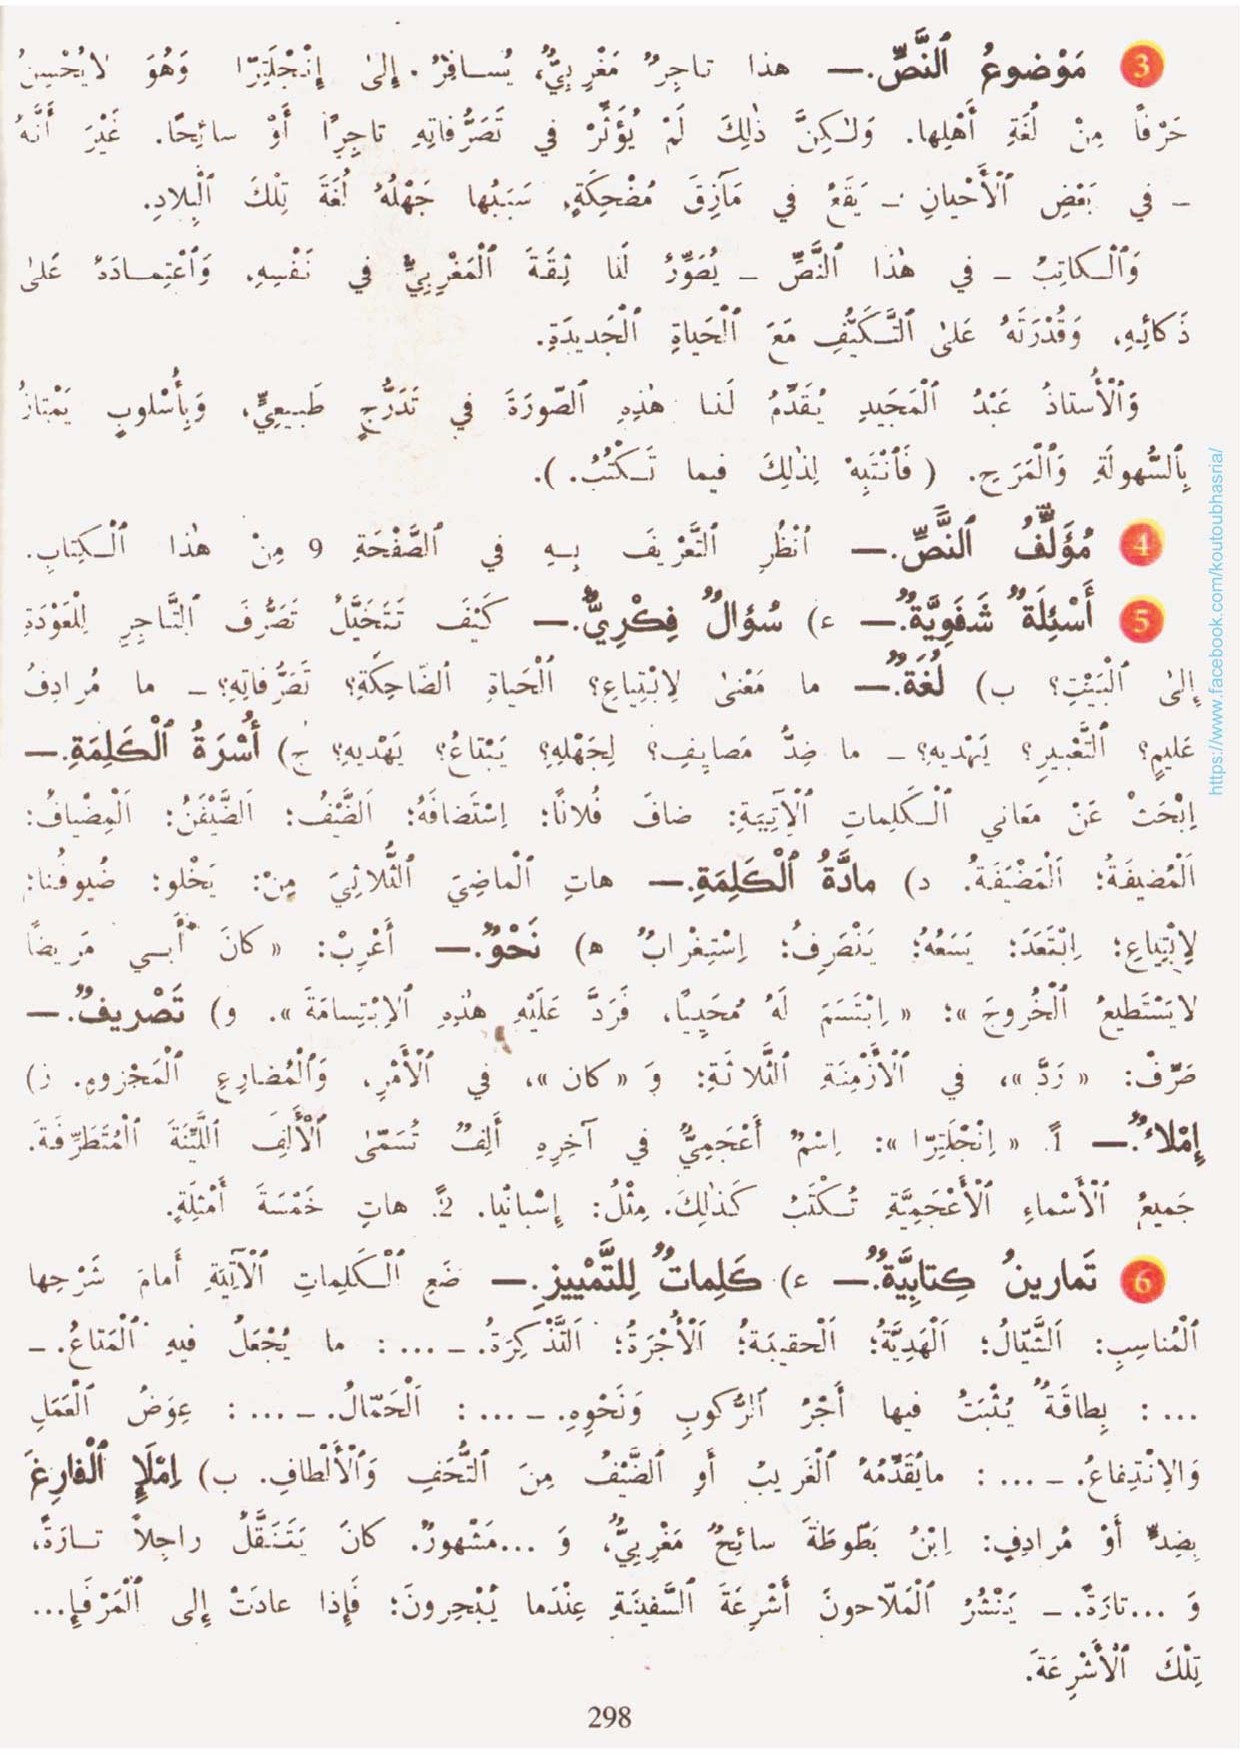 3 مَوْضوعُ ٱلنَّصِّ.— هذا تاجِرٌ مَغْرِبِيٌّ، يُسـافِرُ إِلىٰ إِنْجْلَتِرّا وَهُوَ لايُحْسِنُ
حَرْفاً مِنْ لُغَةِ أَهْلِها. وَلـٰكِنَّ ذٰلِكَ لَمْ يُؤَثِّرْ في تَصَرُّفاتِهِ تاجِرًا أَوْ سائِحًا. غَيْرَ أَنَّهُ
- في بَعْضِ ٱلْأَحْيانِ - يَقَعُ في مَآزِقَ مُضْحِكَةٍ، سَبَبُها جَهْلُهُ لُغَةَ تِلْكَ ٱلْبِلادِ.
وَٱلْـكاتِبُ - في هٰذا ٱلنَّصِّ - يُصَوِّرُ لَنا ثِقَةَ ٱلْمَغْرِبِيِّ في نَفْسِهِ، وَٱعْتِمـادَهُ عَلىٰ
ذَكائِهِ، وَقُدْرَتَهُ عَلىٰ ٱلتَّـكَيُّفِ مَعَ ٱلْحَياةِ ٱلْجَديدَةِ.
وَٱلْأُستاذُ عَبْدُ ٱلْمَجيدِ يُقَدِّمُ لَنا هٰذِهِ ٱلصّورَةَ في تَدَرُّجٍ طَبيعِيٍّ، وَبِأُسْلوبٍ يَمْتازُ
بِٱلسُّهولَةِ وَٱلْمَرَحِ. ( فَٱنْتَبِهْ لِذٰلِكَ فيما تَـكْتُبُ. ).
4 مُؤَلِّفُ ٱلنَّصِّ.— اُنْظُرِ ٱلتَّعْريفَ بِـهِ في ٱلصَّفْحَةِ 9 مِنْ هٰذا ٱلْـكِتابِ.
5 أَسْئِلَةٌ شَفَوِيَّةٌ.— ء) سُؤالٌ فِكْرِيٌّ.— كَيْفَ تَتَخَيَّلُ تَصَرُّفَ ٱلتَّاجِرِ لِلْعَوْدَةِ
إِلىٰ ٱلْبَيْتِ؟ ب) لُغَةٌ.— ما مَعْنىٰ لِابْتِياعِ؟ ٱلْحَياةِ ٱلضّاحِكَةِ؟ تَصَرُّفاتِهِ؟ - ما مُرادِفُ
عَليمٍ؟ ٱلتَّعْبيرِ؟ يَهْديهِ؟ - ما ضِدُّ مَصايِفِ؟ لِجَهْلِهِ؟ يَبْتاعُ؟ يَهْديهِ؟ ج) أُسْرَةُ ٱلْكَلِمَةِ.—
اِبْحَثْ عَنْ مَعَاني ٱلْـكَلِماتِ ٱلْآتِيَةِ: ضافَ فُلانًا؛ اِسْتَضافَهُ؛ اَلضَّيْفُ؛ اَلضَّيْفَنُ؛ اَلْمِضْيافُ؛
اَلْمُضيفَةُ؛ اَلْمَضْيَفَةُ. د) مادَّةُ ٱلْكَلِمَةِ.— هاتِ ٱلْماضِيَ ٱلثُّلاثِيَ مِنْ: يَخْلو؛ ضُيوفُنا؛
لِابْتِياعِ؛ اِبْتَعَدَ؛ يَسَعُهُ؛ يَنْصَرِفُ؛ اِسْتِغْرابٌ ه) نَحْوٌ.— أَعْرِبْ: « كانَ أَبـي مَريضًا
لايَسْتَطيعُ ٱلْخُروجَ »؛ « اِبْتَسَمَ لَهُ مُحَيِيًّا، فَرَدَّ عَلَيْهِ هٰذِهِ الاِبْتِسامَةَ ». و) تَصْريفٌ.—
صَرِّفْ: « رَدَّ »، في ٱلْأَزْمِنَةِ ٱلثَّلاثَةِ؛ وَ « كان »، في ٱلْأَمْرِ، وَٱلْمُضارِعِ ٱلْمَجْزومِ. ز)
إِمْلاءٌ.— 1ً. « اِنْجْلَتِرّا »: اِسْمٌ أَعْجَمِيٌّ في آخِرِهِ أَلِفٌ تُسَمّىٰ ٱلْأَلِفَ ٱللَّيِّنَةَ ٱلْمُتَطَرِّفَةَ.
جَميعُ ٱلْأَسْماءِ ٱلْأَعْجَمِيَّةِ تُـكْتَبُ كَذٰلِكَ. مِثْلُ: إِسْبانْيا. 2ً. هاتِ خَمْسَةَ أَمْثِلَةٍ.
6 تَمارينُ كِتابِيَّةٌ.— ء) كَلِماتٌ لِلتَّمْييزِ.— ضَعِ ٱلْـكَلِماتِ ٱلْآتِيَةِ أَمامَ شَرْحِها
ٱلْمُناسِبِ: اَلشَّيّالُ؛ اَلْهَدِيَّةُ؛ اَلْحقيبَةُ؛ اَلْأُجْرَةُ؛ اَلتَّذْكِرَةُ. - ... : ما يُجْعَلُ فيهِ ٱلْمَتاعُ. -
... : بِطاقَةٌ يُثْبَتُ فيها أَجْرُ ٱلرُّكوبِ وَنَحْوِهِ. - ... : اَلْحَمّالُ. - ... : عِوَضُ ٱلْعَمَلِ
وَالاِنْتِفاعُ. - ... : مايُقَدِّمُهُ ٱلْغَريبُ أَوِ ٱلضَّيْفُ مِنَ ٱلتُّحَفِ وَٱلْأَلْطافِ. ب) اِمْلَإِ ٱلْفارِغَ
بِضِدٍّ أَوْ مُرادِفٍ: اِبْنُ بَطّوطَةَ سائِحٌ مَغْرِبِيٌّ، وَ ...مَشْهورٌ. كانَ يَتَنَقَّلُ راجِلاً تـارَةً،
وَ ...تارَةً. - يَنْشُرُ ٱلْمَلاّحونَ أَشْرِعَةَ ٱلسَّفينَةِ عِنْدَما يُبْحِرونَ؛ فَإِذا عادَتْ إِلى ٱلْمَرْفَإِ...
تِلْكَ ٱلْأَشْرِعَةَ.
298
https://www.facebook.com/koutoubhasria/